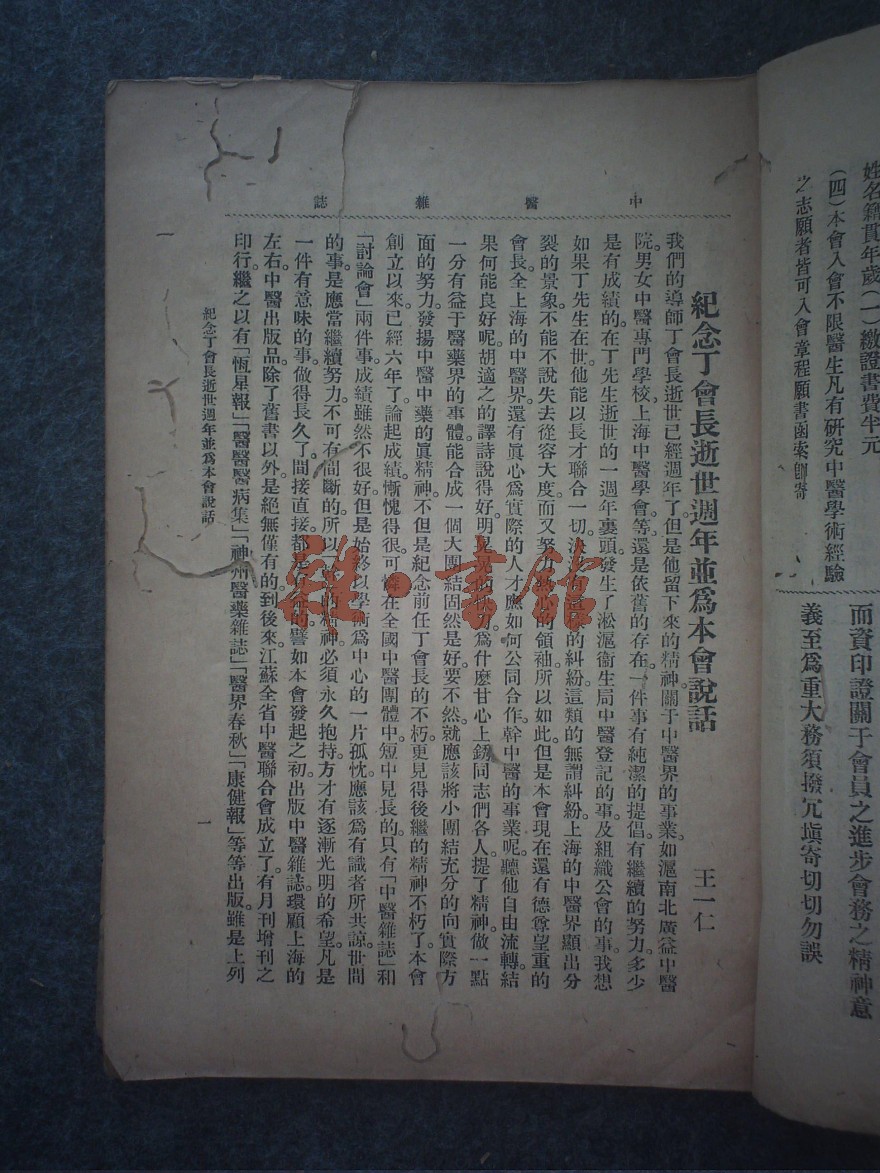 姓名籍貫年歲(一)繳證書費半元
(四)本會入會不限醫生凡有研究中醫學術經驗
之志願者皆可入會章程願書函索卽寄
而資印證關于會員之進步會務之精神意
義至爲重大務須撥冗塡寄切切勿誤
中醫雜誌
紀念丁會長逝世週年並爲本會說話
王一仁
我們的導師丁會長逝世已經週年了。但是他留下來的精神。關于中醫界的事業。如滬南北廣益中醫
院。男女中醫專門學校。上海中醫學會等。還是依舊的存在。一件事有純潔的提倡。有繼續的努力。多少
是有成績的。在丁先生逝世的一週年裏頭。發生了淞滬衞生局中醫登記的事。及組織公會的事。我想
如果丁先生在世。他能以長才聯合一切。決沒有這樣的糾紛。這類的無謂糾紛。上海的中醫界顯出分
裂的景象。不能不說失去從容大度而又努力熱心的領袖。所以如此。但是本會現在還有德尊望重的
會長。全上海的中醫界。還有眞心爲實際的人才。應如何公同合作。幹中醫的事業呢。聽他自由流轉。結
果何能良好呢。胡適之的譯詩說得好。明晃晃的快刀。爲什麼甘心上銹。同志們。各人。提了精神。做一點
一分有益于醫藥界的事體。能合成一個大團結。固然是好。要不然。就應該將小團結充分的向實際方
面的努力。發揚中醫中藥的眞精神。不但是紀念前任丁會長的不朽。更見得後繼的精神不朽了。本會
創立以來。已經六年了。論起成績。慚愧得很。可憐在全國中醫團體中。短中見長的。只有「中醫雜誌」和
「討論會」兩件事。成績雖然不很好。但是始終以學術爲中心的一片孤忱。應該爲有識者所共諒。世間
的事。是應當繼續努力。不可有間斷的。所以一致的精神。必須永久抱持。方才有逐漸光明的希望。凡是
一件有意味的事。做得長久了。間接直接。都是有益的。譬如本會發起之初。出版中醫雜誌。環顧上海的
左右。中醫出版品。除了舊書以外。是絕無僅有的。到後來江蘇全省中醫聯合會成立了。有月刊增刊之
印行。繼之以有「恆星報」「醫醫醫病集」「神州醫藥雜誌」「醫界春秋」「康健報」等等出版。雖是上列
紀念丁會長逝世週年並爲本會說話
一
一